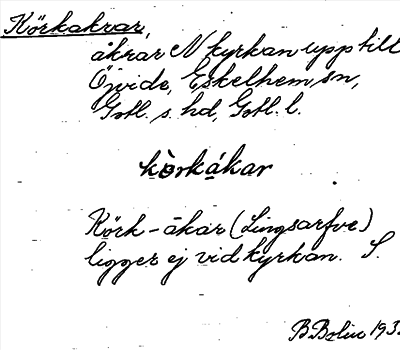 Körkakrar,
åkrar N kyrkan upp till
Öjvide, Eskelhem sn,
Gotl. s. hd, Gotl. l.
kòrkákar
Körk-åkar (Lingsarfve)
ligger ej vid kyrkan. S.
B Bolin 193